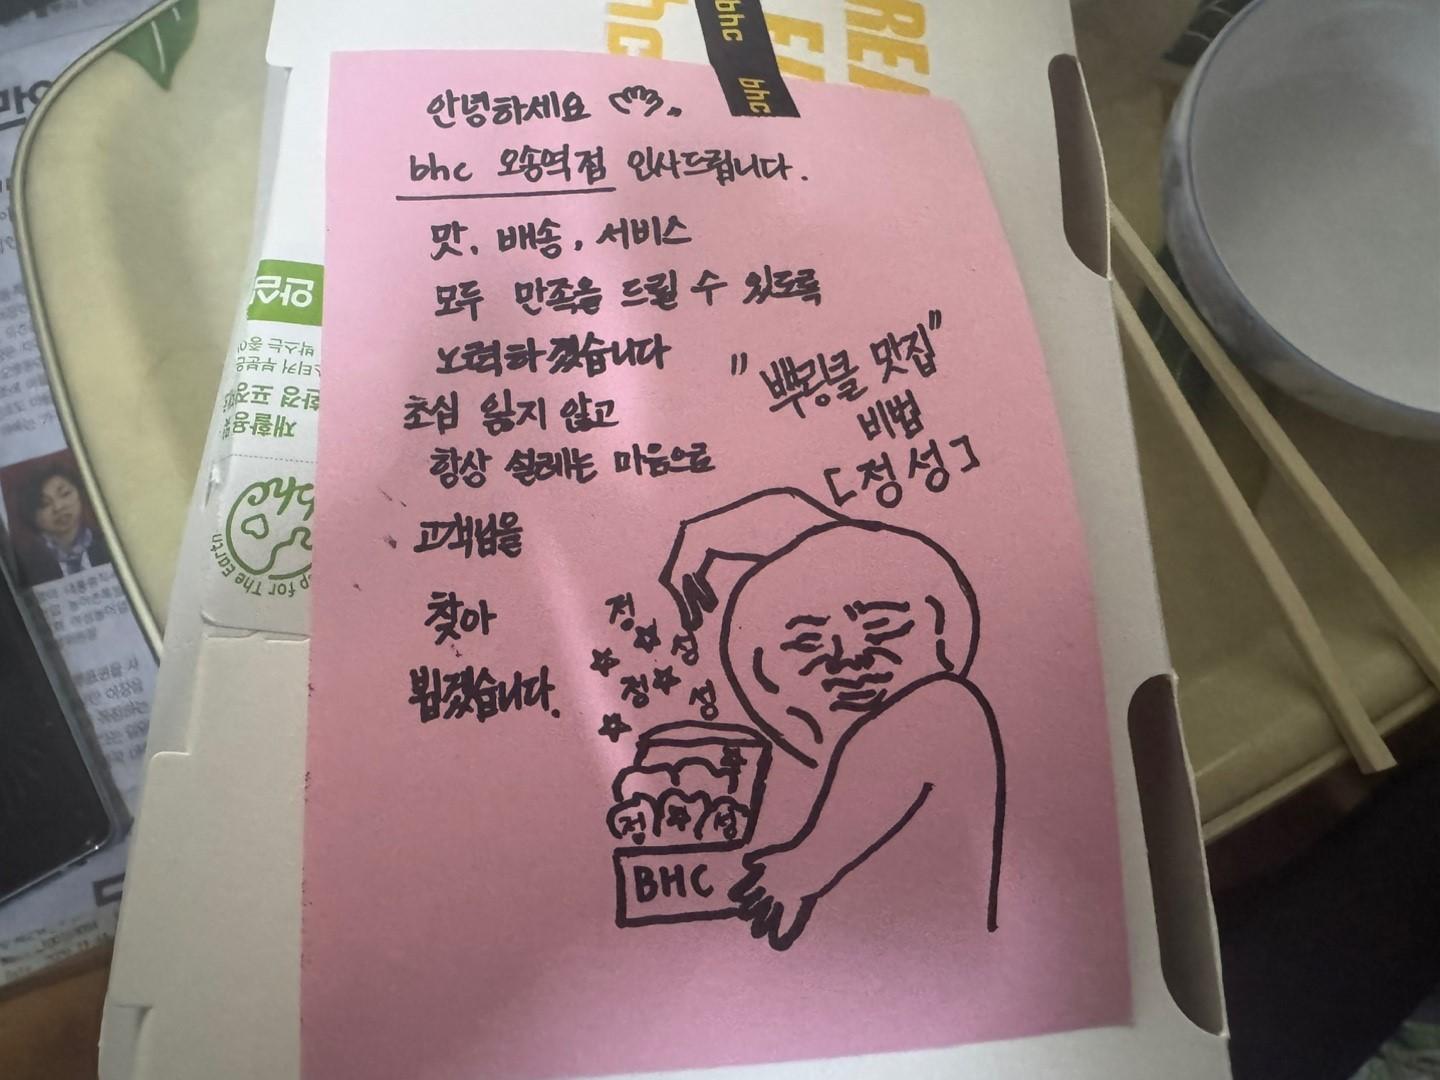 bhc
bhc
안녕하세요
bhc 오송역점 인사드립니다.
맛, 배송, 서비스
모두 만족을 드릴 수 있도록
노력하겠습니다
초심 잃지 않고
항상 설레는 마음으로
고객님을
찾아
뵙겠습니다.
"뿌링클 맛집"
비법
[정성]
정
성
정
성
정 성
BHC
안심
재활용
For The Earth